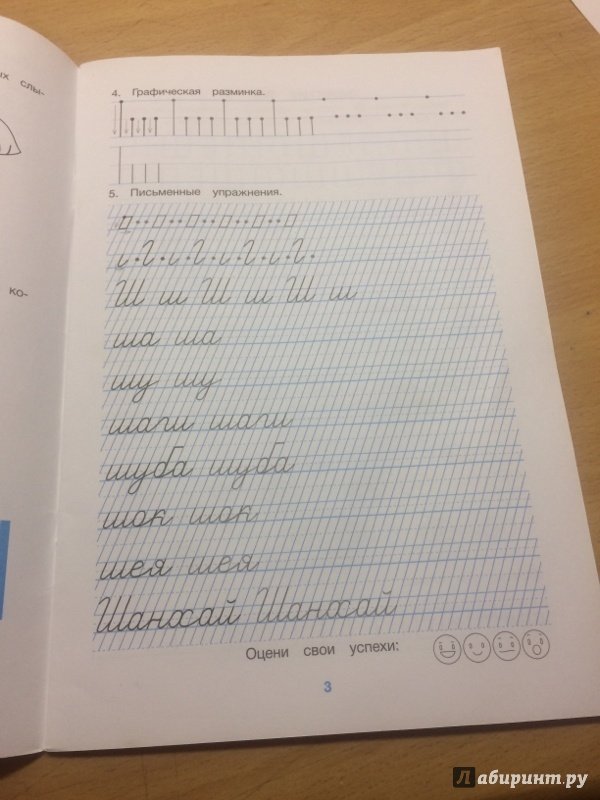 ых слы-
ко-
4. Графическая разминка.
5. Письменные упражнения.
Ш ш Ш ш Ш ш
ша ша
шу шу
шаги шаги
шуба шуба
шок шок
шея шея
Шанхай Шанхай
Оцени свои успехи:
3
Лабиринт.ру